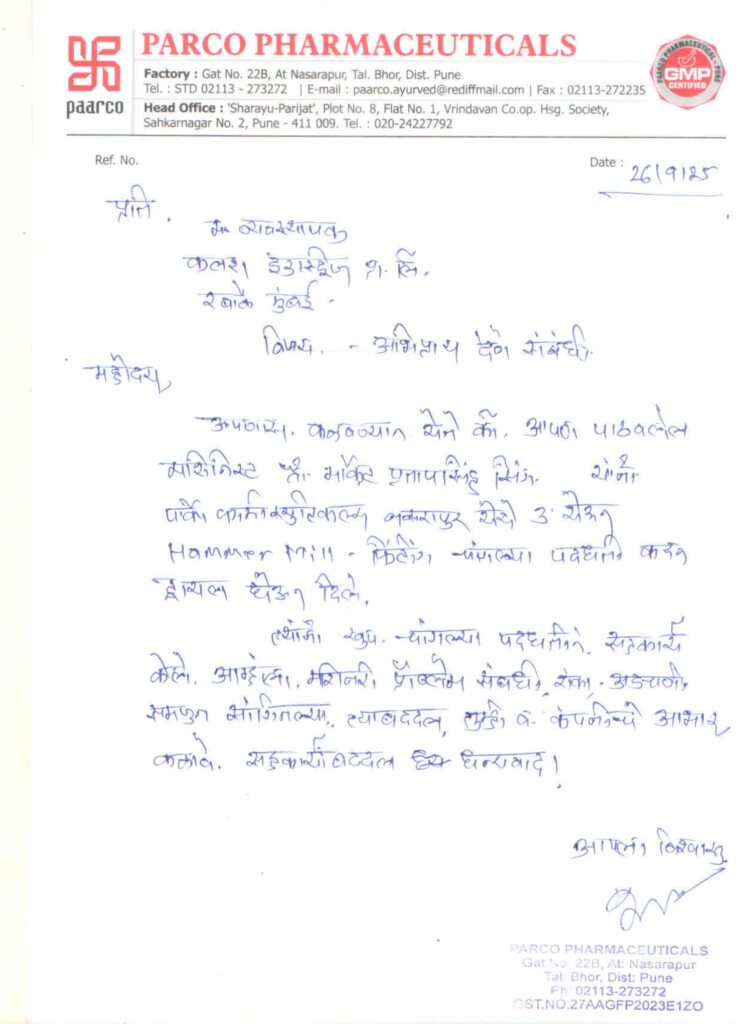 PARCO PHARMACEUTICALS
paarco
Factory : Gat No. 22B, At Nasarapur, Tal. Bhor, Dist. Pune
Tel. : STD 02113 - 273272 | E-mail : paarco.ayurved@rediffmail.com | Fax : 02113-272235
Head Office : 'Sharayu-Parijat', Plot No. 8, Flat No. 1, Vrindavan Co.op. Hsg. Society,
Sahkarnagar No. 2, Pune - 411 009. Tel. : 020-24227792
PAARCO PHARMACEUTICAL - PUNE
GMP
CERTIFIED
Ref. No.
Date : 26/9/25
प्रति,
मा. व्यवस्थापक
कलश इंडस्ट्रिज प्रा. लि.
रबाळे मुंबई.
विषय. - अभिप्राय देणे संबंधी.
महोदय,
आपणास कळवण्यात येते की. आपण पाठवलेल
मशिनिस्ट श्री. प्रतापसिंह सिंग. यांनी
पार्को फार्मास्युटिकल्स नसरापुर येथे येऊन
Hammer Mill - फिटिंग चांगल्या पध्दतीने करुन
ट्रायल घेऊन दिले.
त्यांनी खुप चांगल्या पध्दतीने. सहकार्य
केले. आम्हाला. मशिनरी प्रॉब्लेम संबंधी, शंका - अडचणी
समजुन सांगितल्या. त्याबददल, तुमचे व कंपनीचे आभार
कळावे. सहकार्याबददल धन्यवाद!
आपला विश्वासु
PARCO PHARMACEUTICALS
Gat No. 22B, At: Nasarapur
Tal: Bhor, Dist: Pune
Ph: 02113-273272
GST.NO.27AAGFP2023E1ZO